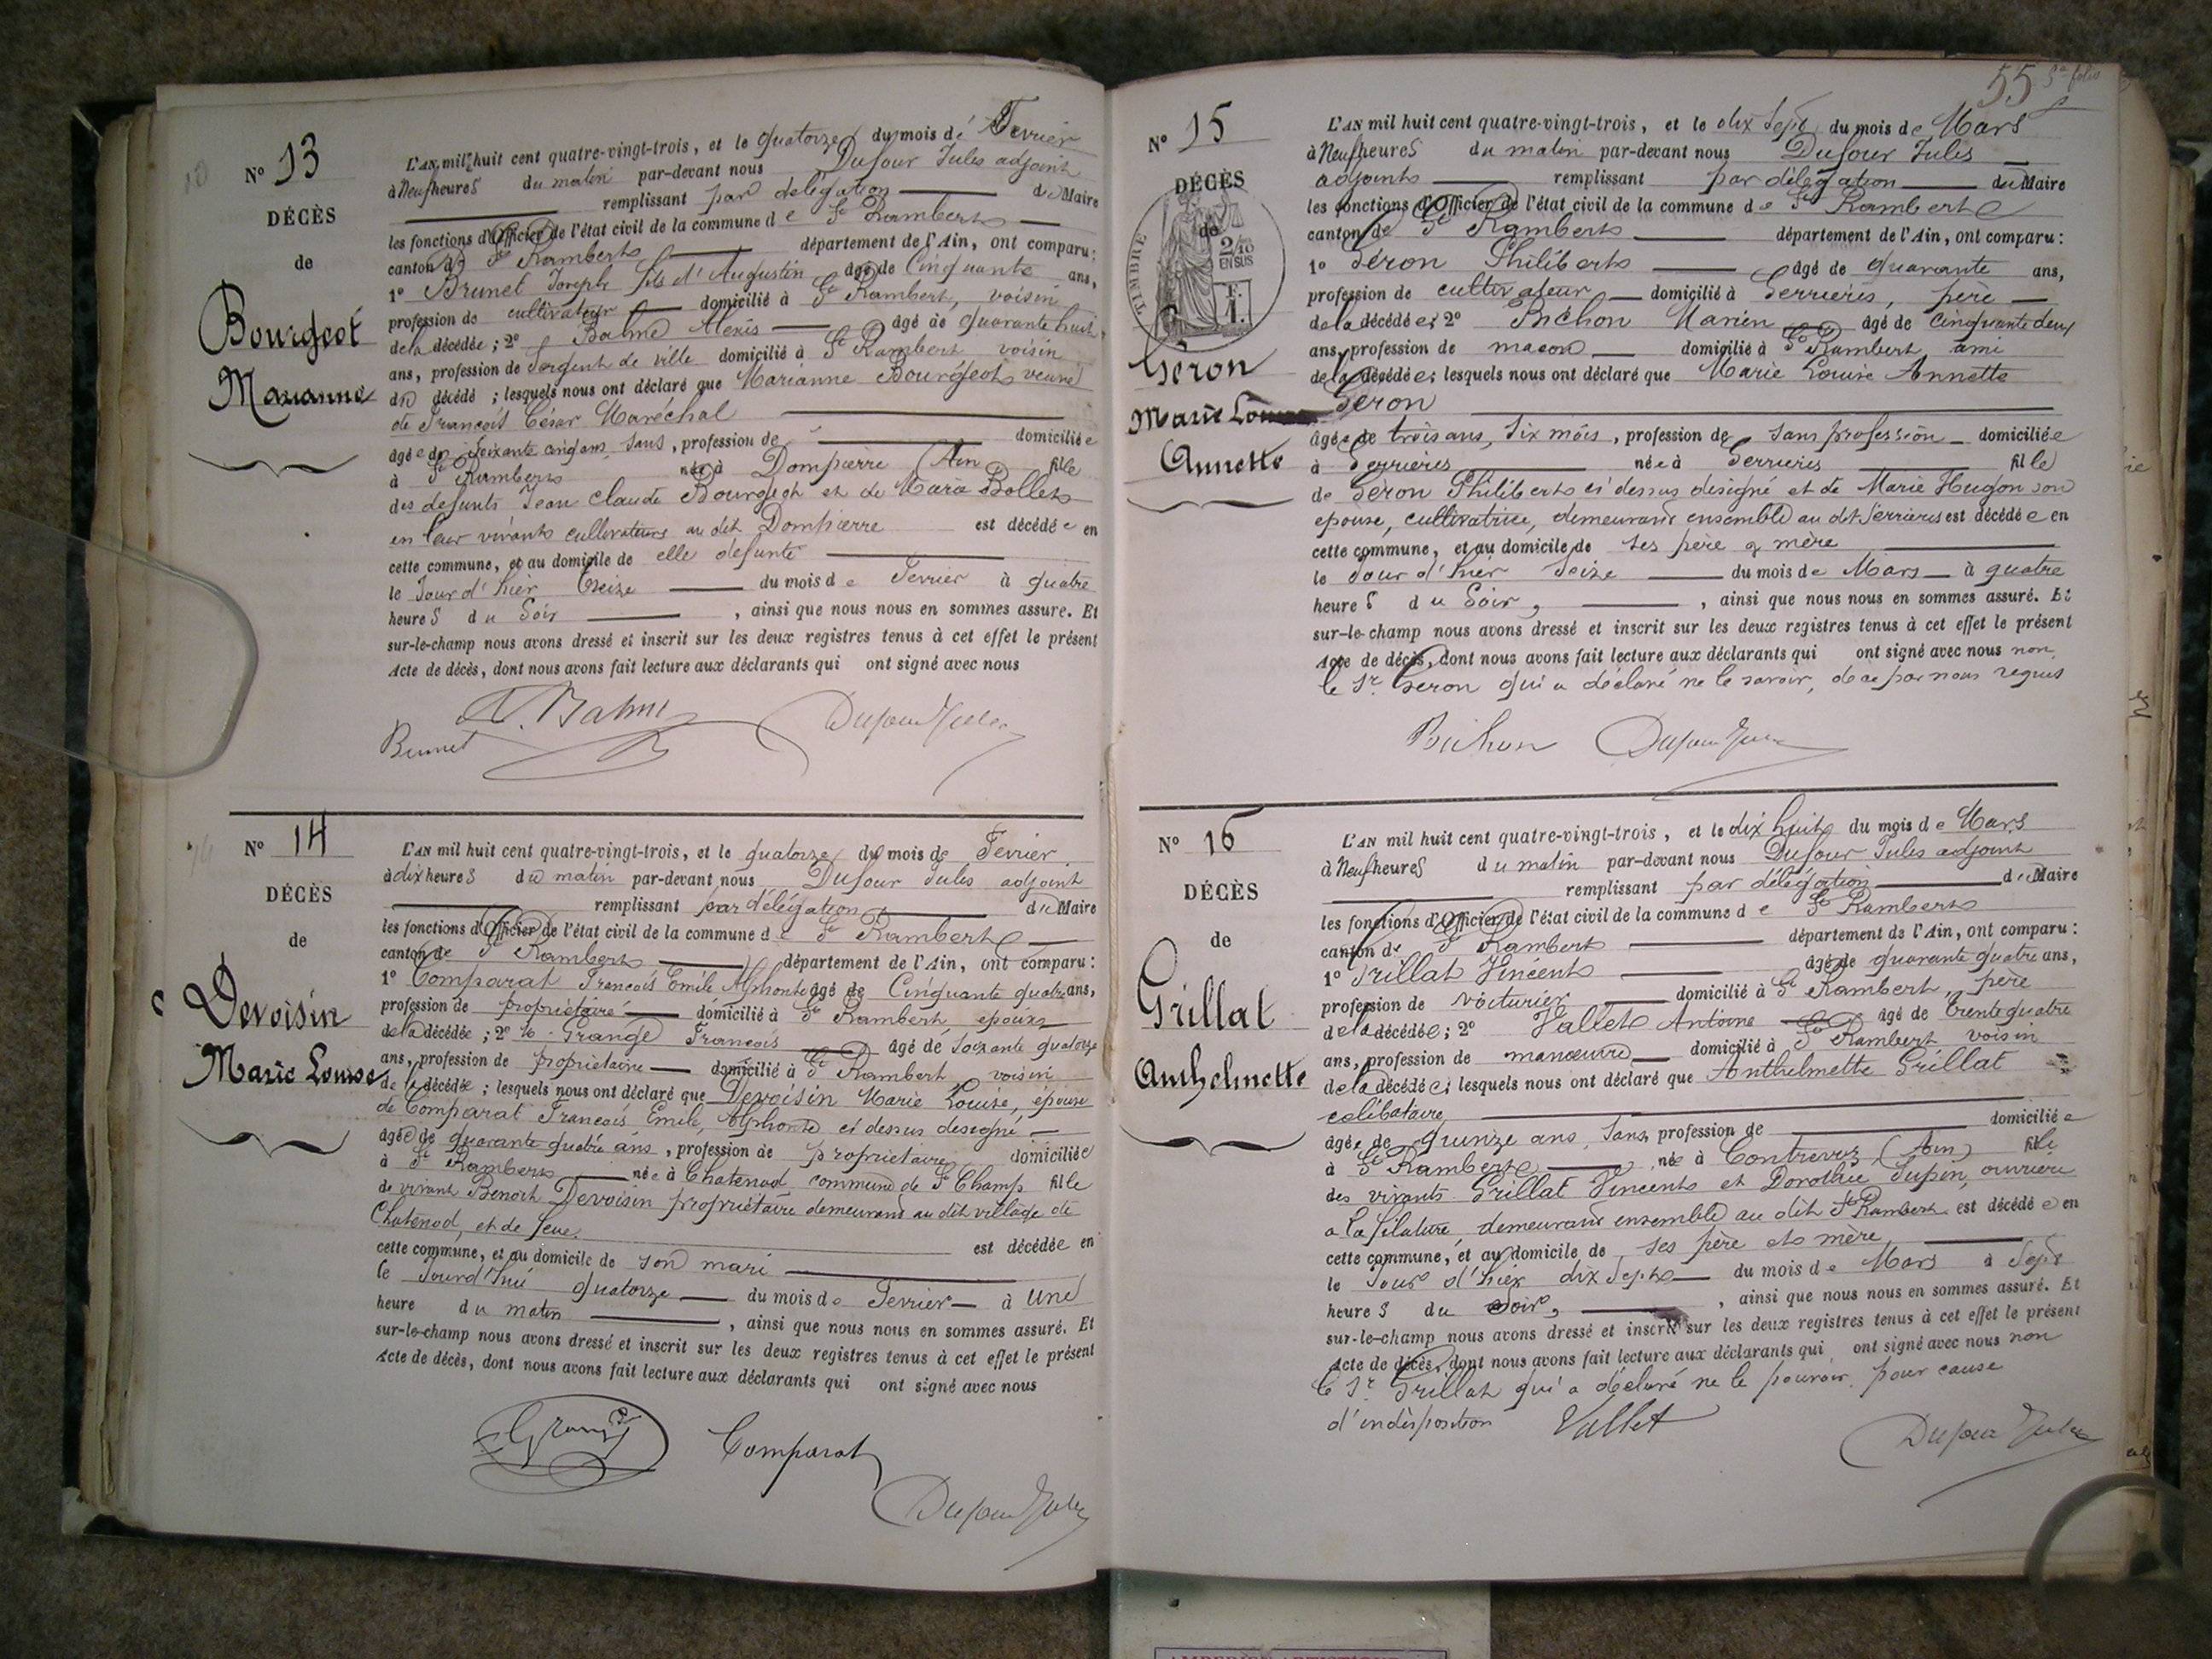 N° 13
DÉCÈS
de
Bourgeot
Marianne
L'AN mil huit cent quatre-vingt-trois, et le quatorze du mois de Fevrier
à Neuf heures du matin par-devant nous Dufour Jules adjoint
remplissant par délégation du Maire
les fonctions d'Officier de l'état civil de la commune de St Rambert
canton de St Rambert département de l'Ain, ont comparu :
1° Brunet Joseph fils d'Augustin âgé de Cinquante ans,
profession de cultivateur domicilié à St Rambert, voisin
de la décédée ; 2° Balme Alexis âgé de quarante huit
ans, profession de Sergent de ville domicilié à St Rambert voisin
du décédé ; lesquels nous ont déclaré que Marianne Bourgeot veuve
de François César Maréchal
âgée de Soixante cinq ans, sans, profession de domiciliée
à St Rambert née à Dompierre (Ain fille
des defunts Jean Claude Bourgeot et de Marie Bollet
en leur vivant cultivateurs au dit Dompierre est décédée en
cette commune, et au domicile de elle défunte
le Jour d'hier treize du mois de Fevrier à quatre
heures du Soir, ainsi que nous nous en sommes assuré. Et
sur-le-champ nous avons dressé et inscrit sur les deux registres tenus à cet effet le présent
Acte de décès, dont nous avons fait lecture aux déclarants qui ont signé avec nous
Brunet A. Balme Dufour Jules
N° 14
DÉCÈS
de
Devoisin
Marie Louise
L'AN mil huit cent quatre-vingt-trois, et le quatorze du mois de Fevrier
à dix heures du matin par-devant nous Dufour Jules adjoint
remplissant par délégation du Maire
les fonctions d'Officier de l'état civil de la commune de St Rambert
canton de St Rambert département de l'Ain, ont comparu :
1° Comparat François Emile Alphonse âgé de Cinquante quatre ans,
profession de propriétaire domicilié à St Rambert, epoux
de la décédée ; 2° Grange François âgé de soixante quatorze
ans, profession de propriétaire domicilié à St Rambert, voisin
de la décédée ; lesquels nous ont déclaré que Devoisin Marie Louise, épouse
de Comparat François Emile, Alphonse ci dessus designé
âgée de quarante quatre ans, profession de propriétaire domiciliée
à St Rambert née à Chatenod commune de St Champ fille
de vivant Benoit Devoisin propriétaire demeurant au dit village de
Chatenod, et de feue.
est décédée en
cette commune, et au domicile de son mari
le Jourd'hui quatorze du mois de Fevrier à Une
heure du matin, ainsi que nous nous en sommes assuré. Et
sur-le-champ nous avons dressé et inscrit sur les deux registres tenus à cet effet le présent
Acte de décès, dont nous avons fait lecture aux déclarants qui ont signé avec nous
Grange Comparat
Dufour Jules
55
N° 15
DÉCÈS
de
TIMBRE
2/10
EN SUS
Géron
Marie Louise
Annette
L'AN mil huit cent quatre-vingt-trois, et le dix Sept du mois de Mars
à Neuf heures du matin par-devant nous Dufour Jules
adjoint remplissant par délégation du Maire
les fonctions d'Officier de l'état civil de la commune de St Rambert
canton de St Rambert département de l'Ain, ont comparu :
1° Géron Philibert âgé de quarante ans,
profession de cultivateur domicilié à Serrières, père
de la décédée ; 2° Bichon Marien âgé de Cinquante deux
ans, profession de maçon domicilié à St Rambert ami
de la décédée ; lesquels nous ont déclaré que Marie Louise Annette
Géron
âgée de trois ans, six mois, profession de sans profession domiciliée
à Serrières née à Serrières fille
de Géron Philibert ci dessus designé et de Marie Hugon son
epouse, cultivatrice, demeurant ensemble au dit Serrières est décédée en
cette commune, et au domicile de ses père & mère
le Jour d'hier Seize du mois de Mars à quatre
heures du Soir, ainsi que nous nous en sommes assuré. Et
sur-le-champ nous avons dressé et inscrit sur les deux registres tenus à cet effet le présent
Acte de décès, dont nous avons fait lecture aux déclarants qui ont signé avec nous non
le Sr Geron qui a déclaré ne le savoir, de ce par nous requis
Bichon Dufour Jules
N° 16
DÉCÈS
de
Grillat
Anthelmette
L'AN mil huit cent quatre-vingt-trois, et le dix huit du mois de Mars
à Neuf heures du matin par-devant nous Dufour Jules adjoint
remplissant par délégation du Maire
les fonctions d'Officier de l'état civil de la commune de St Rambert
canton de St Rambert département de l'Ain, ont comparu :
1° Grillat Vincent âgé de quarante quatre ans,
profession de voiturier domicilié à St Rambert, père
de la décédée ; 2° Vallet Antoine âgé de trente quatre
ans, profession de manœuvre domicilié à St Rambert voisin
de la décédée ; lesquels nous ont déclaré que Anthelmette Grillat
celibataire,
âgée de quinze ans, sans profession de domiciliée
à St Rambert née à Contrevoz (Ain) fille
des vivants Grillat Vincent et Dorothée Jupin, ouvrière
a la filature, demeurant ensemble au dit St Rambert est décédée en
cette commune, et au domicile de ses père et mère
le Jour d'hier dix Sept du mois de Mars à Sept
heures du Soir, ainsi que nous nous en sommes assuré. Et
sur-le-champ nous avons dressé et inscrit sur les deux registres tenus à cet effet le présent
Acte de décès, dont nous avons fait lecture aux déclarants qui ont signé avec nous non
le Sr Grillat qui a déclaré ne le pouvoir pour cause
d'indisposition Vallet Dufour Jules